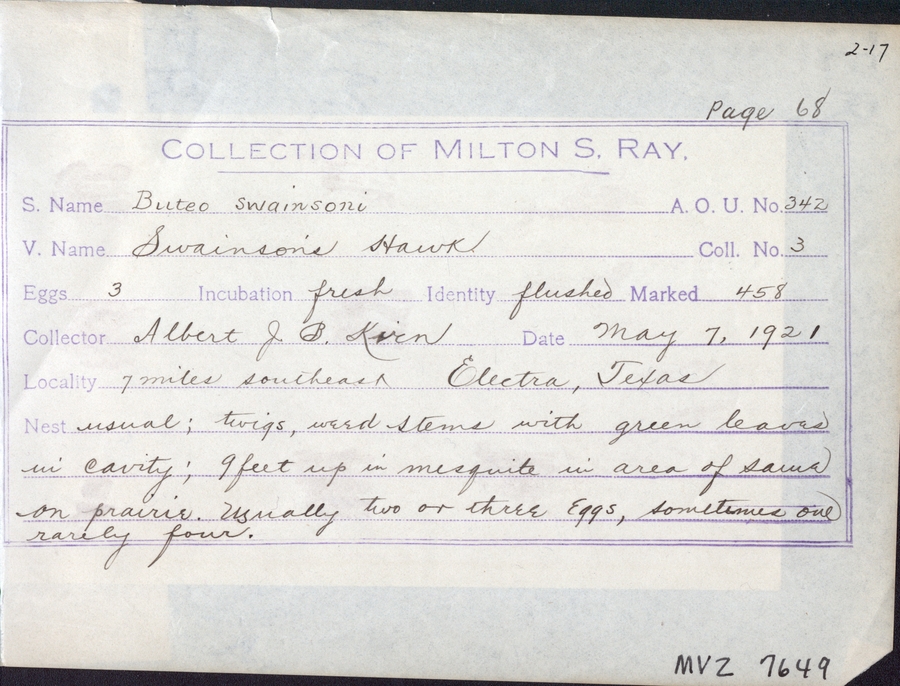 2-17
Page 68
COLLECTION OF MILTON S. RAY.
S. Name Buteo swainsoni A. O. U. No. 342
V. Name Swainson's Hawk Coll. No. 3
Eggs 3 Incubation fresh Identity flushed Marked 458
Collector Albert J B. Kirn Date May 7, 1921
Locality 7 miles southeast Electra, Texas
Nest usual; twigs, weed stems with green leaves
in cavity; 9 feet up in mesquite in area of same
on prairie. Usually two or three Eggs, sometimes one
rarely four.
MVZ 7649